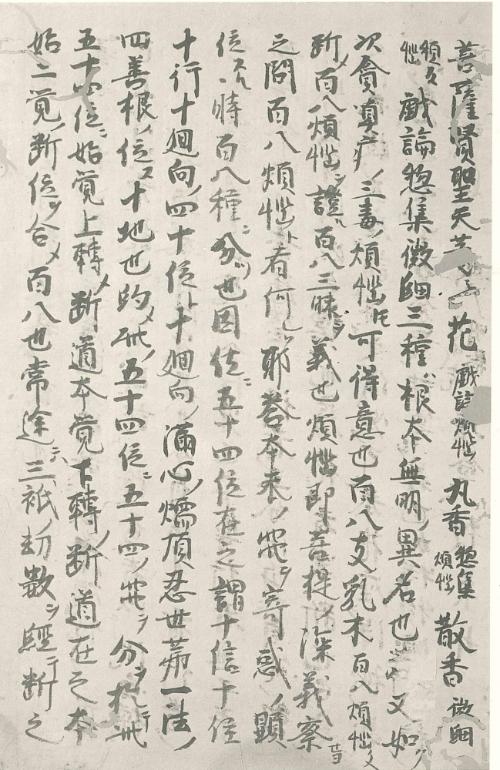 菩薩賢聖天等 花 戯論煩悩 丸香 惣集煩悩 散香 微細
煩悩 戯論惣集微細三種ハ根本無明ノ異名也 又如
次貪瞋癡ノ三毒ノ煩悩 可得意也百八支乳木百八煩悩
断百八煩悩ヲ證百八三昧ヲ義也煩悩即菩提ノ深義
之問百八煩悩ト者何 耶答本来ノ 寄惑ノ顕
位 時百八種ニ分也因位ニ五十四位在之謂十信十住
十行十廻向ノ四十位ト十廻向ノ満心ノ煗頂忍世第一法ノ
四善根ノ位 十地也 五十四位ニ五十四ノ ヲ分
五十四位ニ始覚上轉ノ断道本覚下轉ノ断道在之本
始二覚ノ断位ヲ合 百八也常途ニ三祇ノ劫数ヲ經テ断之